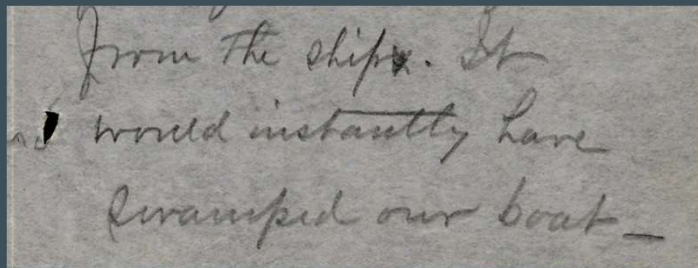 from the ship. It
would instantly have
swamped our boat_